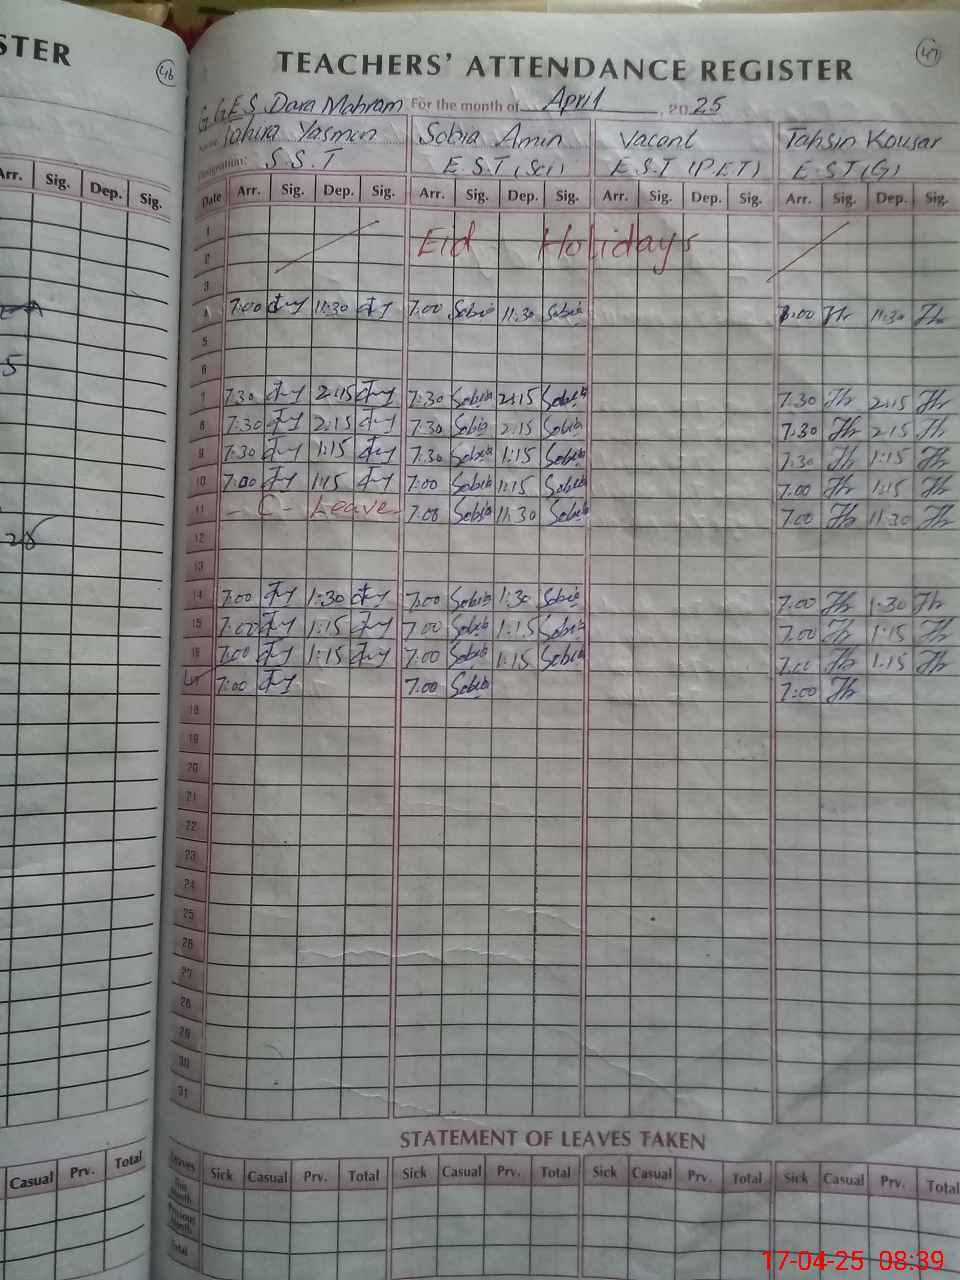 STER
46
Arr. Sig. Dep. Sig.
5
Casual Prv. Total
47
TEACHERS' ATTENDANCE REGISTER
G.G.E.S. Dara Mahram For the month of April, 2025
Name Tahira Yasmon Sobia Amin Vacant Tahsin Kousar
Designation: S.S.T E.S.T (Sci) E.S.T (P.E.T) E.S.T (G)
Date Arr. Sig. Dep. Sig. Arr. Sig. Dep. Sig. Arr. Sig. Dep. Sig. Arr. Sig. Dep. Sig.
1 Eid Holidays
2
3
4 7:00 11:30 7:00 Sobia 11:30 Sobia 11:30
5
6
7 7:30 2:15 7:30 Sobia 2:15 Sobia 7:30 2:15
8 7:30 2:15 7:30 Sobia 2:15 Sobia 7:30 2:15
9 7:30 1:15 7:30 Sobia 1:15 Sobia 7:30 1:15
10 7:00 1:15 7:00 Sobia 1:15 Sobia 7:00 1:15
11 - C - Leave 7:00 Sobia 11:30 Sobia 7:00 11:30
12
13
14 7:00 1:30 7:00 Sobia 1:30 Sobia 7:00 1:30
15 7:00 1:15 7:00 Sobia 1:15 Sobia 7:00 1:15
16 7:00 1:15 7:00 Sobia 1:15 Sobia 7:00 1:15
17 7:00 7:00 Sobia 7:00
18
19
20
21
22
23
24
25
26
27
28
29
30
31
STATEMENT OF LEAVES TAKEN
Leaves Sick Casual Prv. Total Sick Casual Prv. Total Sick Casual Prv. Total Sick Casual Prv. Total
Month
Previous Month
Total
17-04-25 08:39